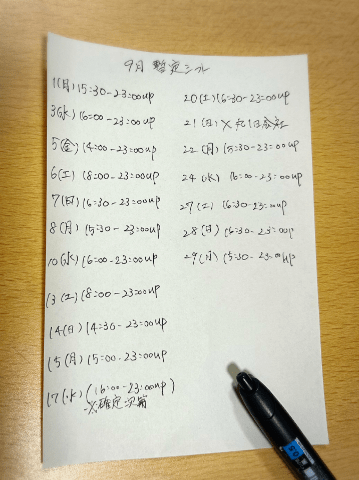 9月 暫定シフト
1(月)15:30-23:00up
3(水)16:00-23:00up
5(金)14:00-23:00up
6(土)18:00-23:00up
7(日)16:30-23:00up
8(月)15:30-23:00up
10(水)16:00-23:00up
13(土)18:00-23:00up
14(日)14:30-23:00up
15(月)15:00-23:00up
17(水)(16:00-23:00up)
※確定次第
20(土)16:30-23:00up
21(日)
22(月)15:30-23:00up
24(水) 16:00-23:00up
27(土) 16:30-23:00up
28(日) 16:30-23:00up
29(月) 15:30-23:00up